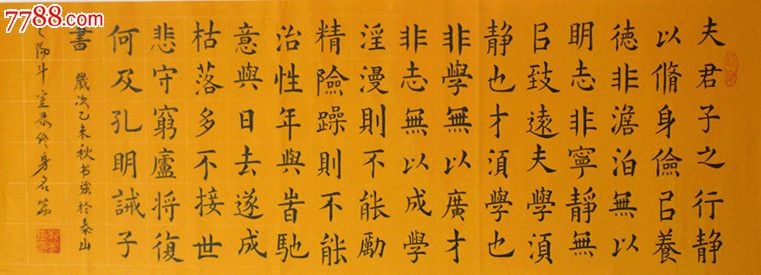 夫君子之行靜
以脩身儉㠯養
徳非澹泊無以
明志非寧靜無
㠯致遠夫學須
靜也才須學也
非學無以廣才
非志無以成學
淫漫則不能勵
精險躁則不能
治性年與旹馳
意與日去遂成
枯落多不接世
悲守窮廬將復
何及孔明誡子
書
歲次乙未秋书於泰山
之陽斗室
7788.com